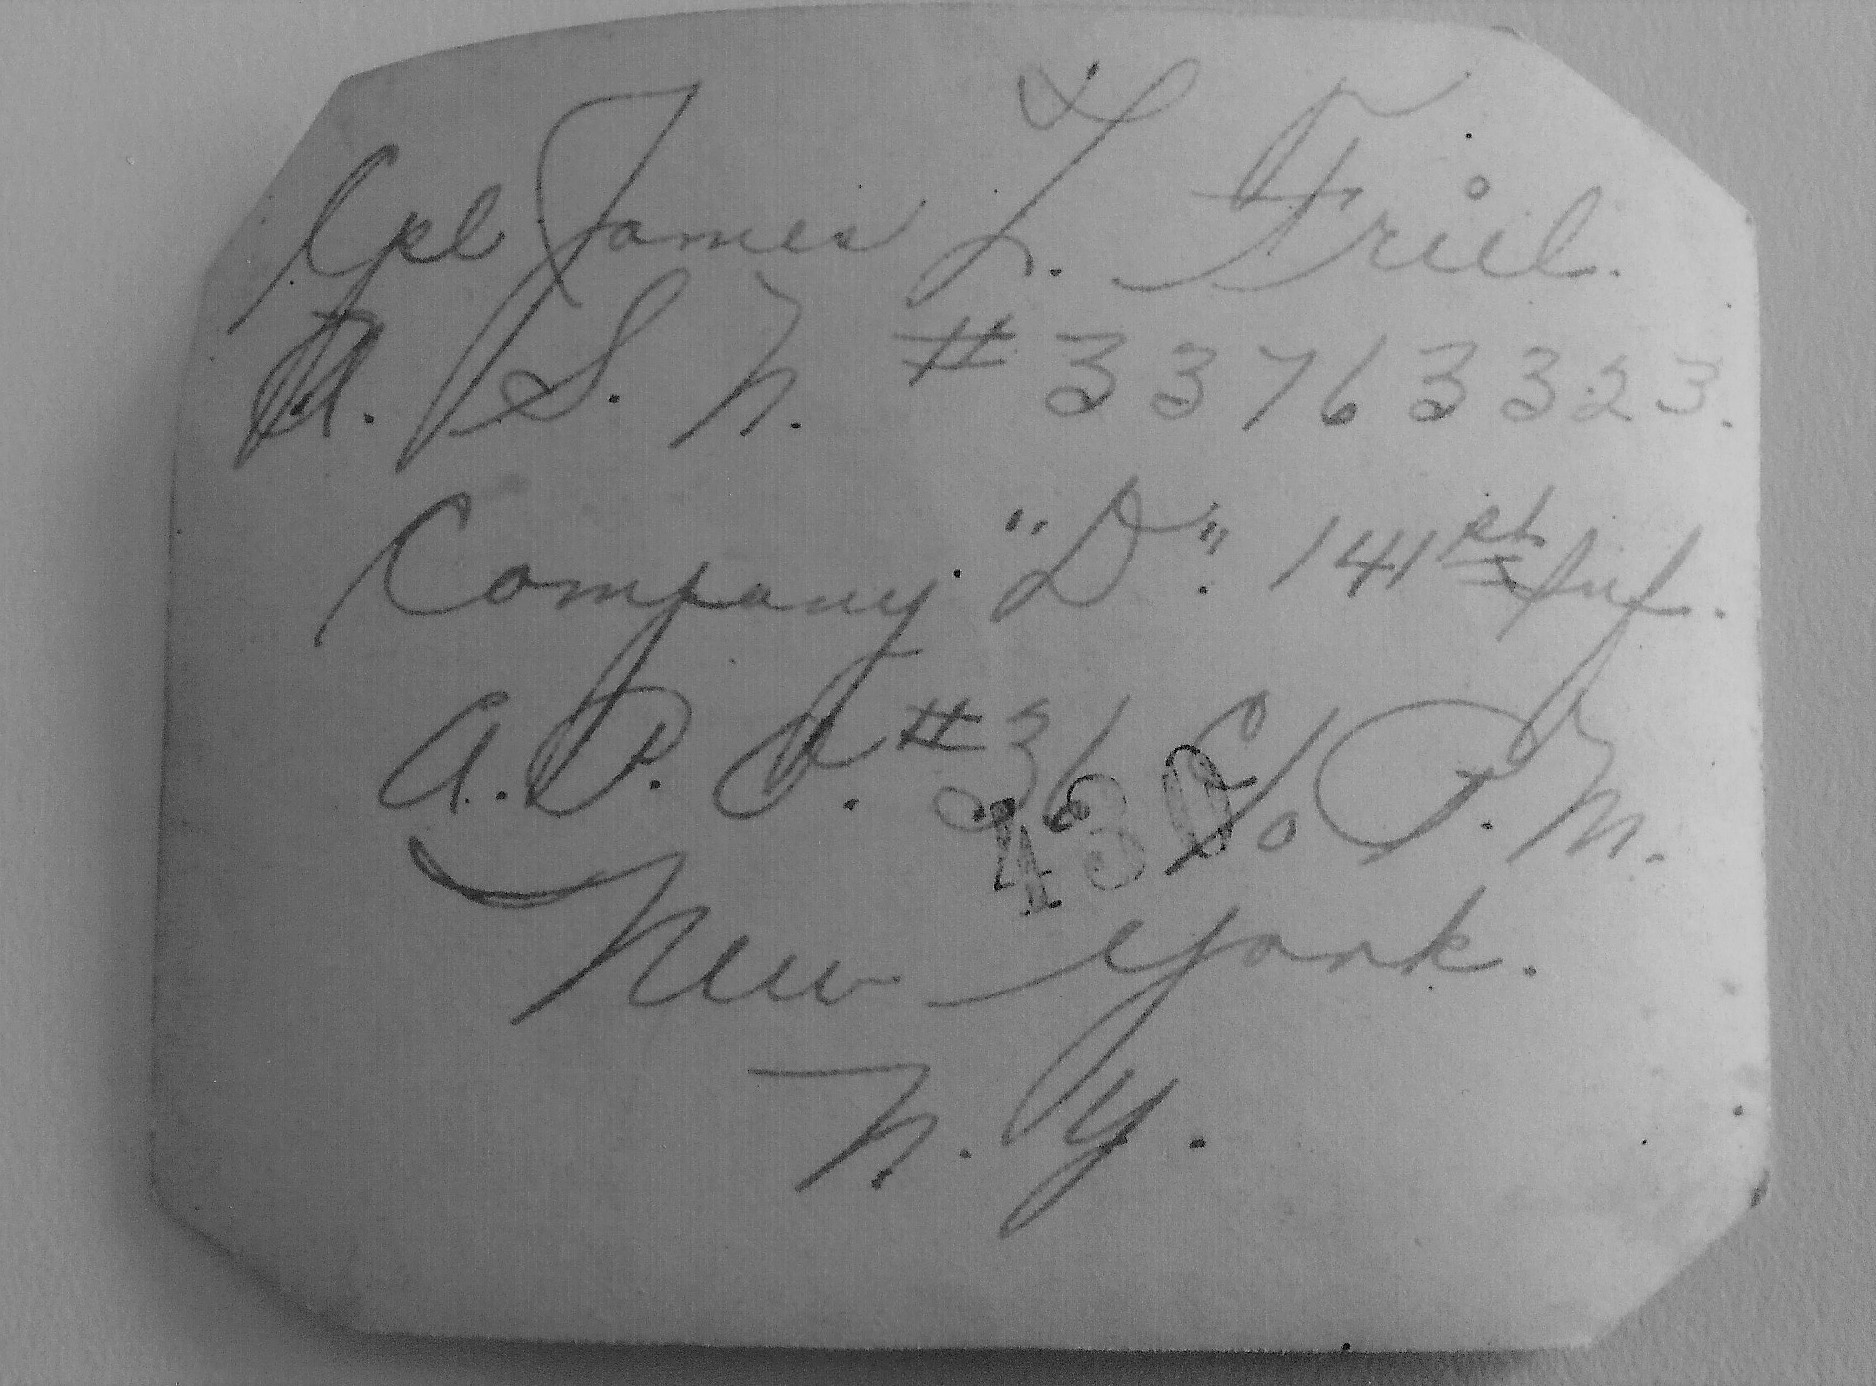 Cpl James L. Friel.
A. S. N. # 33763323.
Company "D". 141st Inf.
A. P. O. #36 C/o P. M.
430
New York.
N. Y.